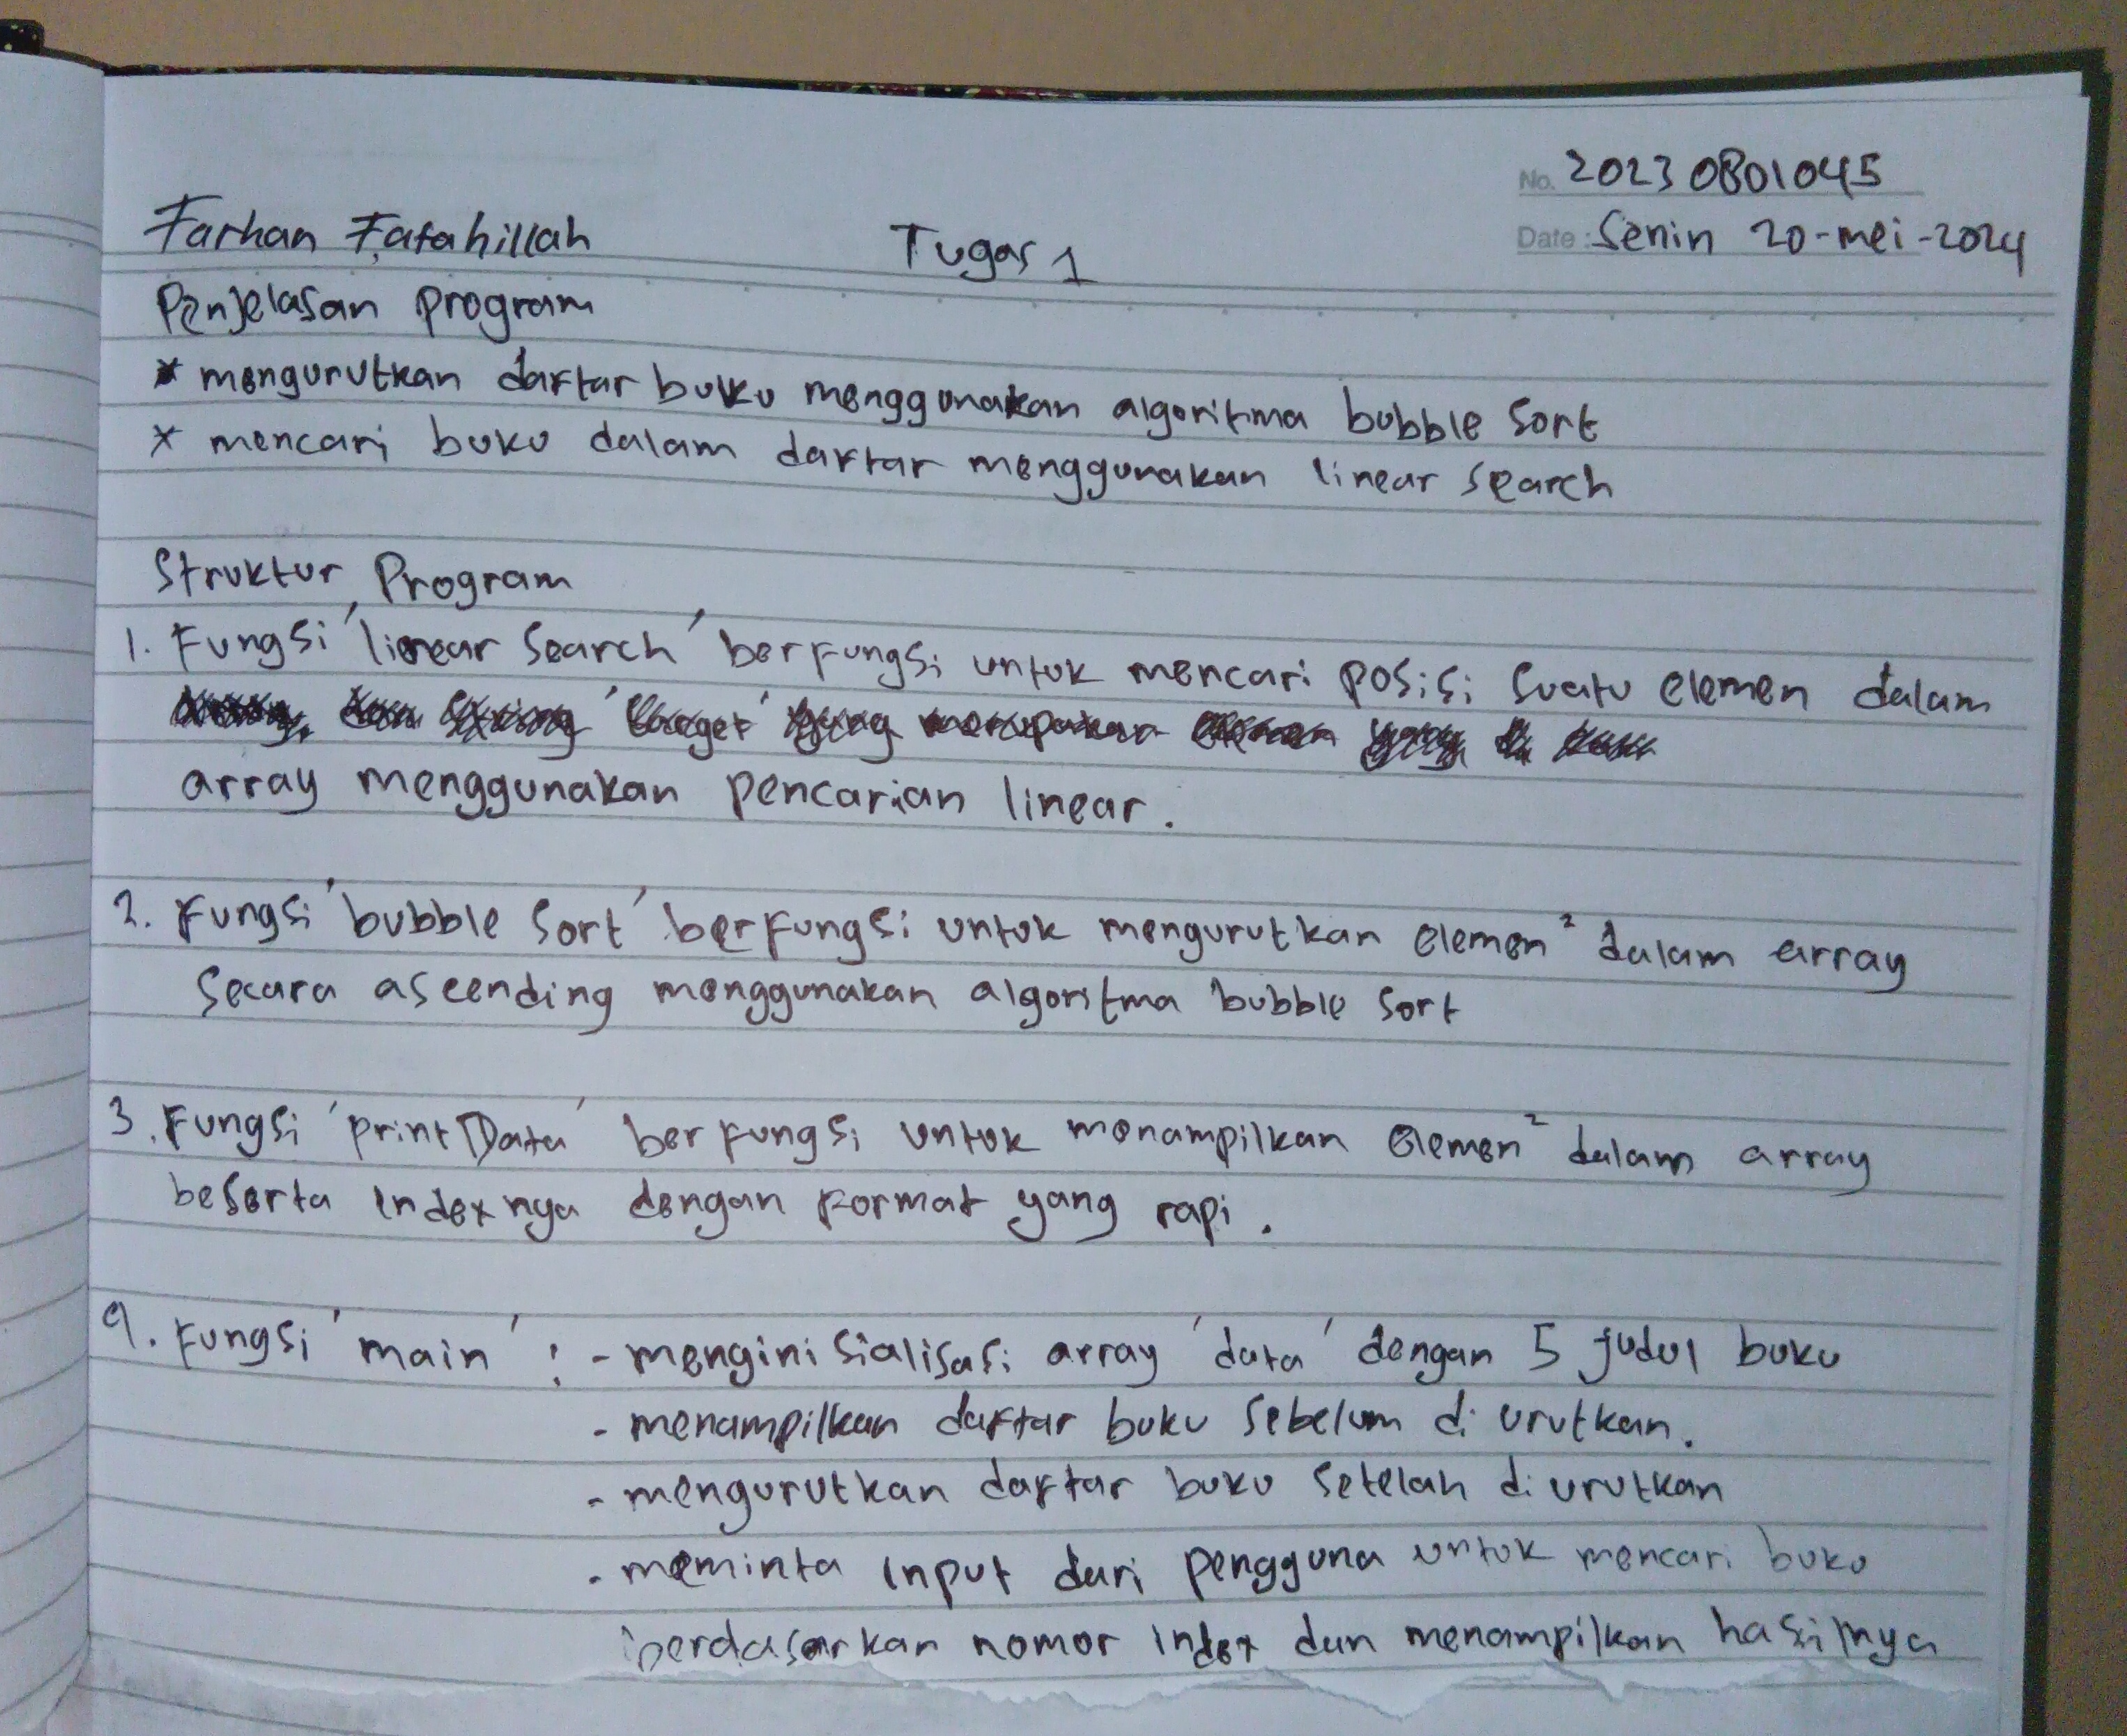 No. 20230801045
Farhan Fatahillah Tugas 1 Date: Senin 20-mei-2024
Penjelasan program
* mengurutkan daftar buku menggunakan algoritma bubble sort
* mencari buku dalam daftar menggunakan linear search
Struktur Program
1. Fungsi 'linear search' berfungsi untuk mencari posisi suatu elemen dalam
array menggunakan pencarian linear.
2. Fungsi 'bubble sort' berfungsi untuk mengurutkan elemen² dalam array
secara ascending menggunakan algoritma bubble sort
3. Fungsi 'printData' berfungsi untuk menampilkan elemen² dalam array
beserta indexnya dengan format yang rapi.
4. Fungsi 'main' : - menginisialisasi array 'data' dengan 5 judul buku
- menampilkan daftar buku sebelum di urutkan.
- mengurutkan daftar buku setelah di urutkan
- meminta input dari pengguna untuk mencari buku
berdasarkan nomor index dan menampilkan hasilnya